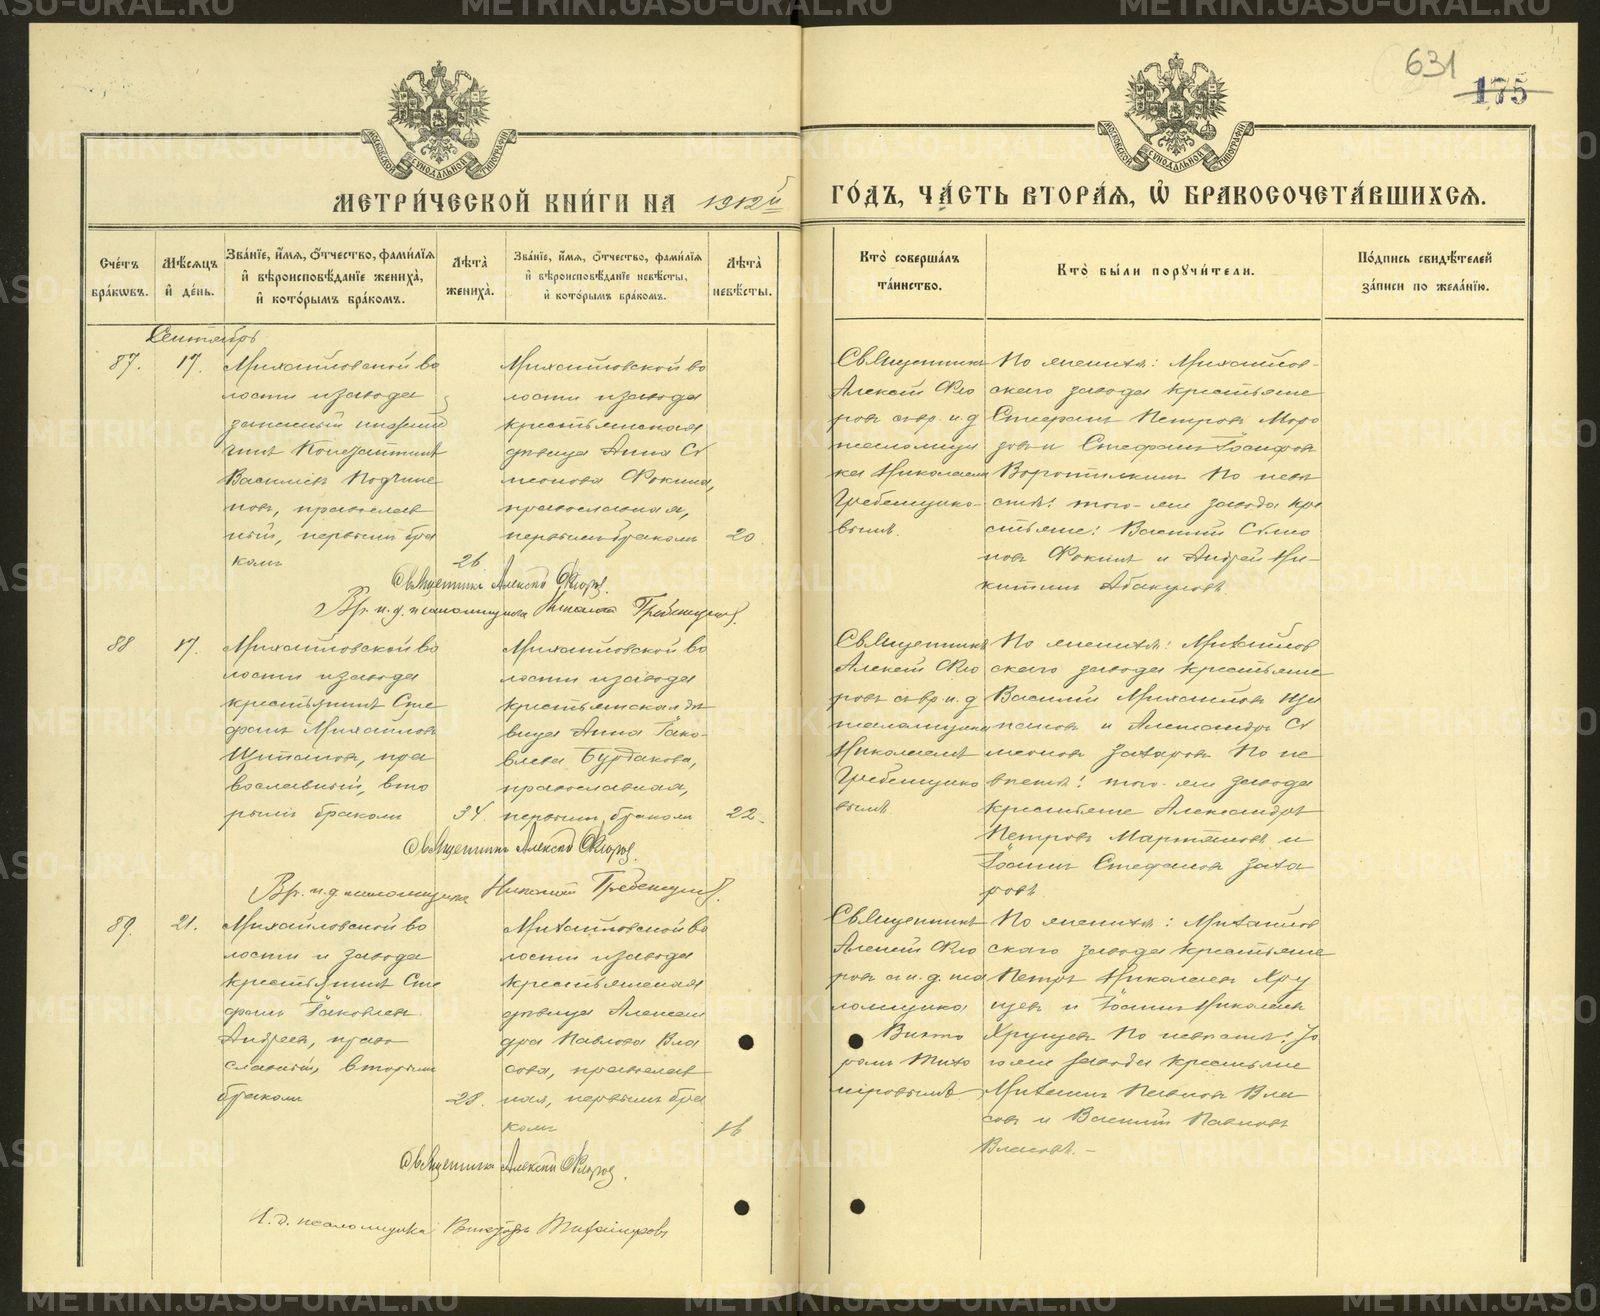 631
175
МЕТРИ́ЧЕСКОЙ КНИ́ГИ НА 1912й
ГО́ДЪ, ЧА́СТЬ ВТОРА́Я, Ѡ БРАКОСОЧЕТА́ВШИХСЯ.
МОСКОВСКОЙ СѴНОДАЛЬНОЙ ТИПОГРАФІИ
МОСКОВСКОЙ СѴНОДАЛЬНОЙ ТИПОГРАФІИ
Счётъ бра́кѡвъ.
Мѣ́сяцъ и҆ де́нь.
Зва́нїе, и҆́мя, ѻ҆́тчество, фами́лїя и҆ вѣроисповѣ́данїе жениха̀, и҆ кото́рымъ бра́комъ.
Лѣта̀ жениха̀.
Зва́нїе, и҆́мя, ѻ҆́тчество, фами́лїя и҆ вѣроисповѣ́данїе невѣ́сты, и҆ кото́рымъ бра́комъ.
Лѣта̀ невѣ́сты.
Кто̀ соверша́лъ та́инство.
Кто̀ бы́ли порꙋчи́тели.
По́дпись свидѣ́телей за́писи по жела́нїю.
Сентябрь
87.
17.
Михайловской во
лости и завода
запасный
Константинъ
Васильевъ Подчине
новъ, православ
ный, первымъ бра
комъ
26
Михайловской во
лости и завода
крестьянская
дѣвица Анна Си
меонова Фокина,
православная,
первымъ бракомъ
20.
Священникъ
Алексѣй Фло
ровъ съ вр. и. д
псаломщи
ка Николаемъ
Гребенщико-
вымъ.
По женихѣ: Михайлов-
скаго завода крестьяне
Стефанъ Петровъ Моро
зовъ и Стефанъ Іосифовъ
Воротилкинъ По невѣ
стѣ: того-же завода кре
стьяне: Василій Симео
новъ Фокинъ и Андрей Ни-
китинъ Абакумовъ.
Священникъ Алексѣй Флоровъ.
Вр. и. д. псаломщика Николай Гребенщиковъ.
88
17.
Михайловской во
лости и завода
крестьянинъ Сте
фанъ Михайловъ
Щипановъ, пра
вославный, вто
рымъ бракомъ
34.
Михайловской во
лости и завода
крестьянская дѣ
вица Анна Іако-
влева Бурдакова,
православная,
первымъ бракомъ
22.
Священникъ
Алексѣй Фло
ровъ съ вр. и. д
псаломщикомъ
Николаемъ
Гребенщико
вымъ
По женихѣ: Михайлов
скаго завода крестьяне
Василій Михайловъ Щи
пановъ и Александръ Си
меоновъ Захаровъ По не
вѣстѣ: того-же завода
крестьяне Александръ
Петровъ Мартяновъ и
Іоаннъ Стефановъ Заха
ровъ
Священникъ Алексѣй Флоровъ.
Вр. и. д псаломщика Николай Гребенщиковъ.
89.
21.
Михайловской во
лости и завода
крестьянинъ Сте
фанъ Іаковлевъ
Андреевъ, право
славный, вторымъ
бракомъ
28.
Михайловской во
лости и завода
крестьянская
дѣвица Алексан
дра Павлова Вла
сова, православ
ная, первымъ бра
комъ
16
Священникъ
Алексѣй Фло
ровъ с и. д. пса
ломщика
Викто
ромъ Тиха
мировымъ
По женихѣ: Михайлов
скаго завода крестьяне
Петръ Николаевъ Хру
щевъ и Іоаннъ Николаевъ
Хрущевъ По невѣстѣ: то
гоже завода крестьяне
Михаилъ Павловъ Вла
совъ и Василій Павловъ
Власовъ. –
Священникъ Алексѣй Флоровъ.
И. д. псаломщика Викторъ Тихамировъ
METRIKI.GASO-URAL.RU